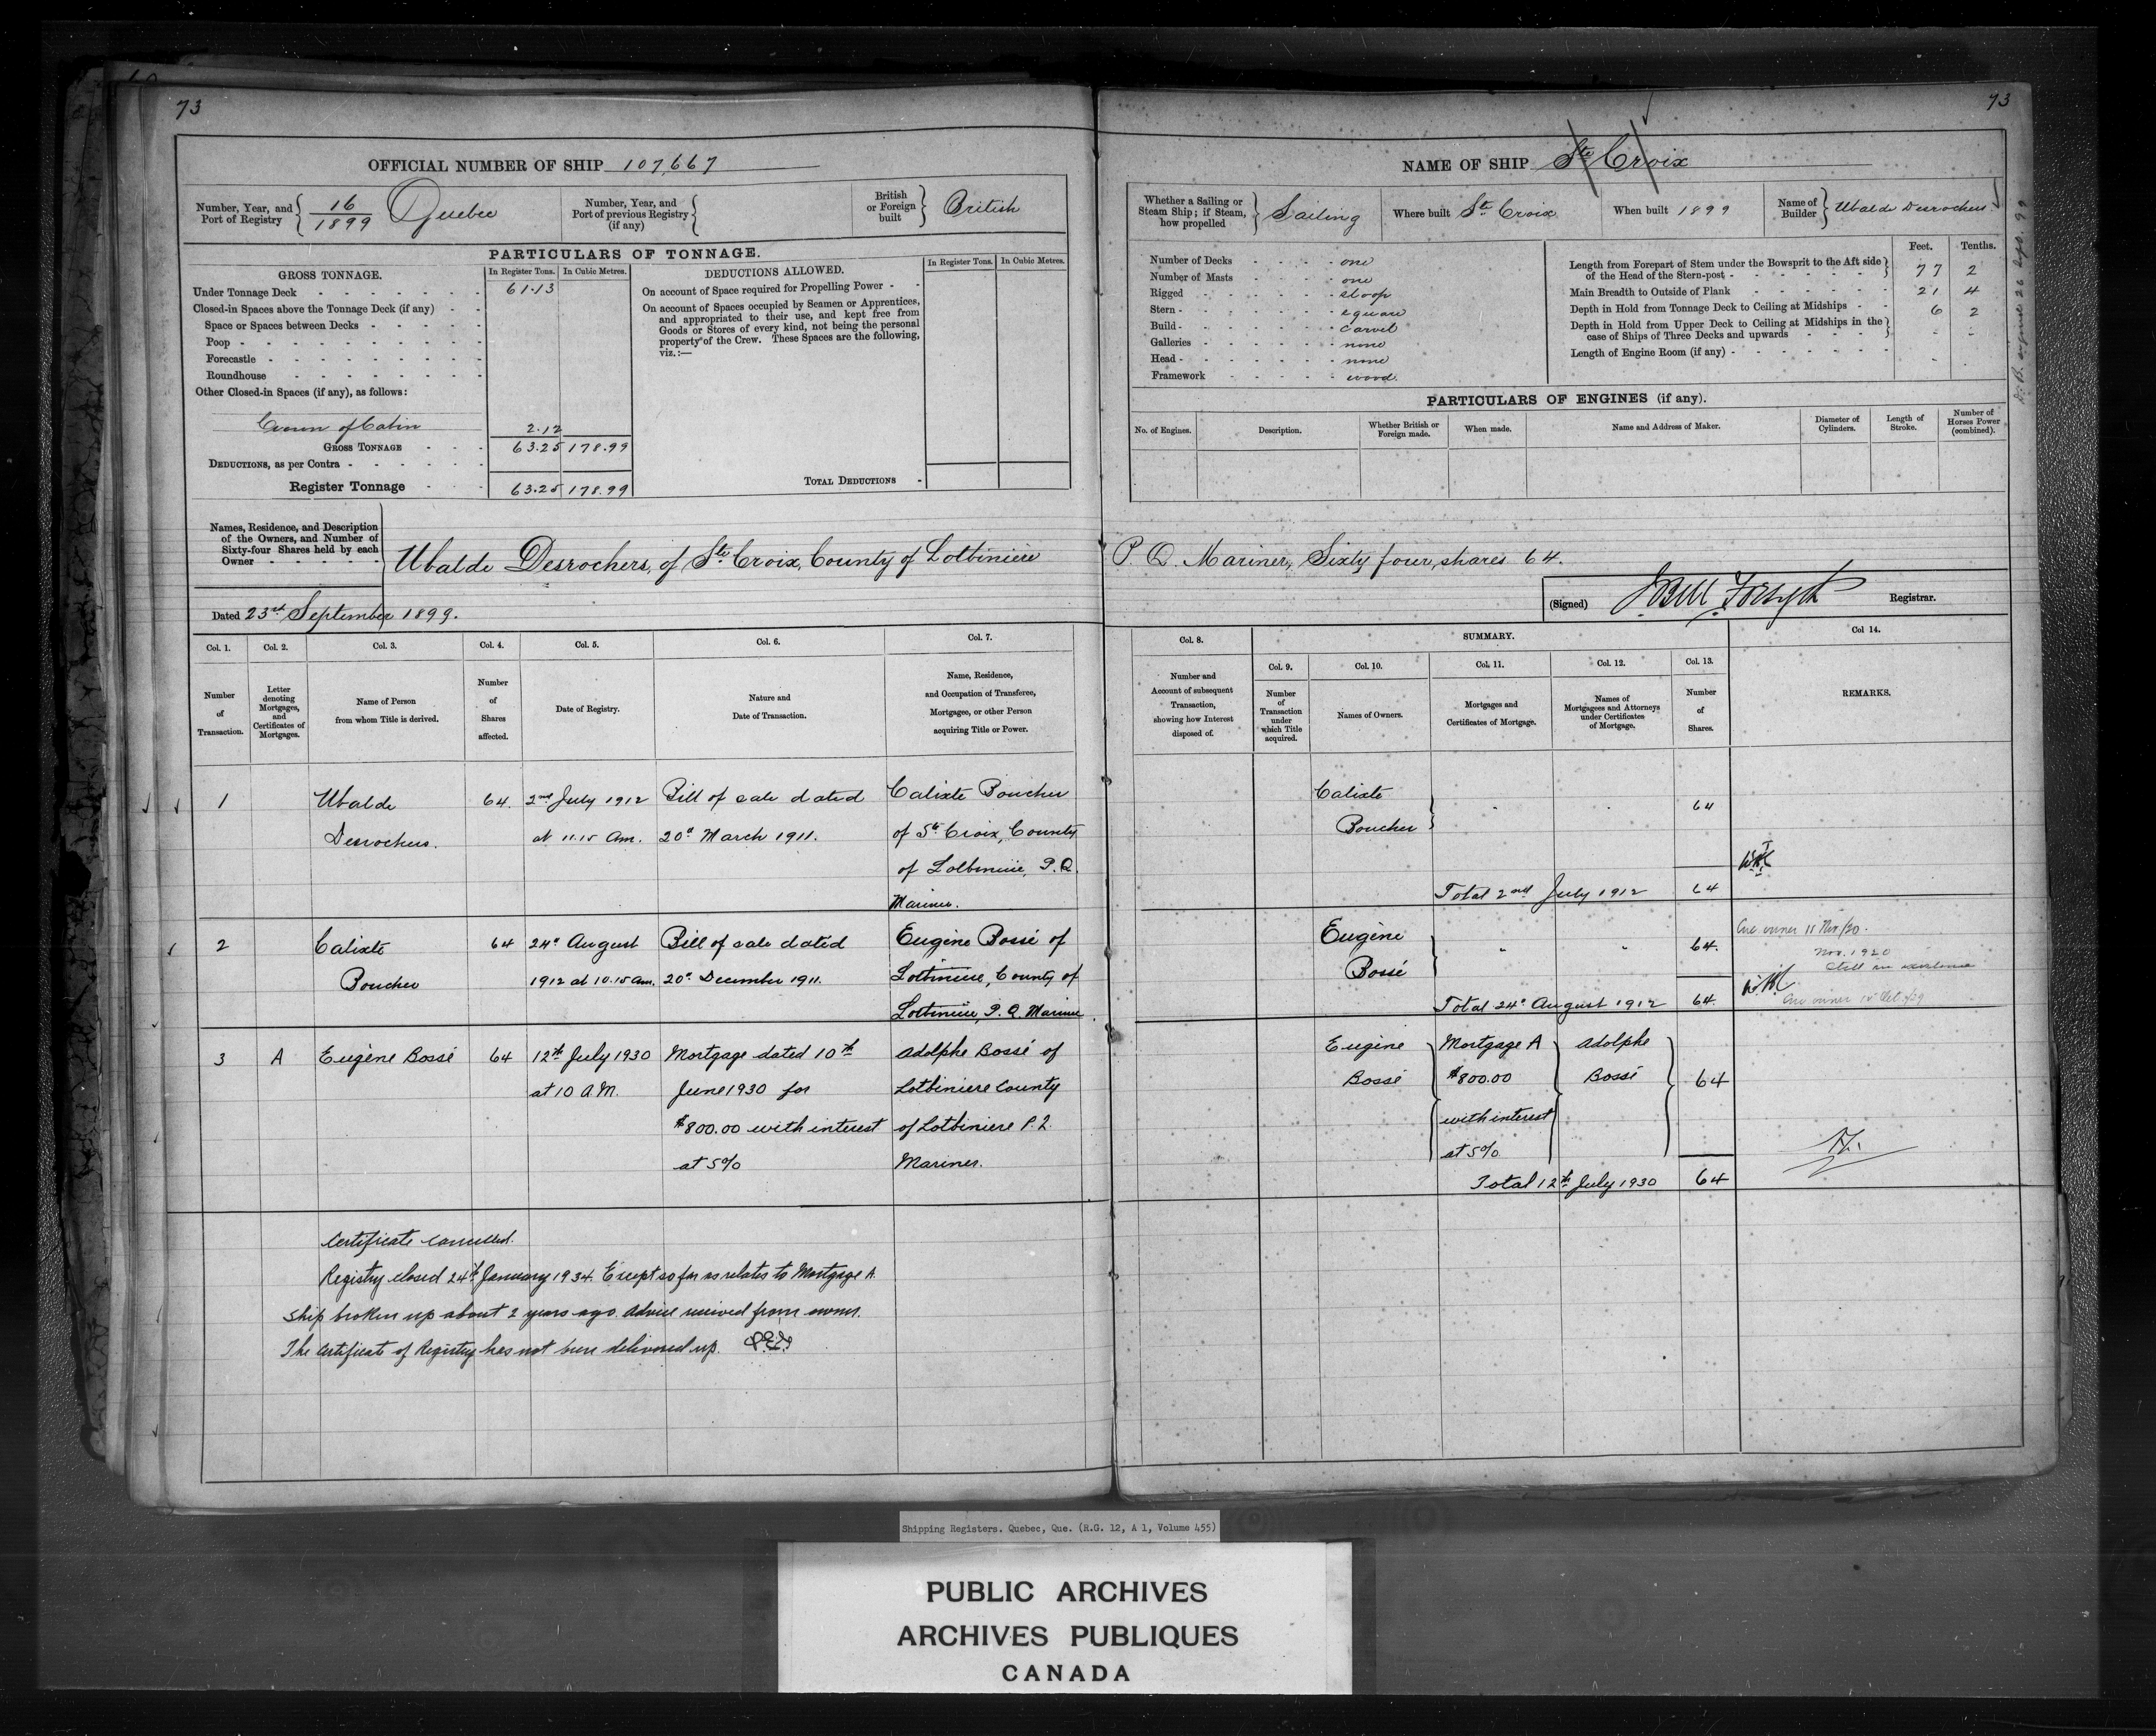 73
OFFICIAL NUMBER OF SHIP 107,667
Number, Year, and Port of Registry 16/1899 Quebec
Number, Year, and Port of previous Registry (if any)
British or Foreign built British
PARTICULARS OF TONNAGE.
GROSS TONNAGE. In Register Tons. In Cubic Metres.
Under Tonnage Deck 61.13
Closed-in Spaces above the Tonnage Deck (if any)
Space or Spaces between Decks
Poop
Forecastle
Roundhouse
Other Closed-in Spaces (if any), as follows:
Crown of Cabin 2.12
GROSS TONNAGE 63.25 178.99
DEDUCTIONS, as per Contra
Register Tonnage 63.25 178.99
DEDUCTIONS ALLOWED. In Register Tons. In Cubic Metres.
On account of Space required for Propelling Power
On account of Spaces occupied by Seamen or Apprentices,
and appropriated to their use, and kept free from
Goods or Stores of every kind, not being the personal
property of the Crew. These Spaces are the following,
viz.:—
TOTAL DEDUCTIONS
Names, Residence, and Description
of the Owners, and Number of
Sixty-four Shares held by each
Owner
Ubalde Desrochers, of Ste Croix, County of Lotbiniere
Dated 23rd September 1899.
Col. 1. Col. 2. Col. 3. Col. 4. Col. 5. Col. 6. Col. 7.
Number of Transaction.
Letter denoting Mortgages, and Certificates of Mortgages.
Name of Person from whom Title is derived.
Number of Shares affected.
Date of Registry.
Nature and Date of Transaction.
Name, Residence, and Occupation of Transferee, Mortgagee, or other Person acquiring Title or Power.
1 Ubalde 64. 2nd July 1912 Bill of sale dated Calixte Boucher
Desrochers. at 11.15 Am. 20th March 1911. of Ste Croix, County
of Lotbiniere, P.Q.
Mariner.
2 Calixte 64 24th August Bill of sale dated Eugène Bossé of
Boucher 1912 at 10.15 am. 20th December 1911. Lotbiniere, County of
Lotbiniere, P.Q. Mariner.
3 A Eugène Bossé 64 12th July 1930 Mortgage dated 10th Adolphe Bossé of
at 10 A.M. June 1930 for Lotbiniere County
$800.00 with interest of Lotbiniere P.Q.
at 5% Mariner.
Certificate cancelled.
Registry closed 24th January 1934. Except so far as relates to Mortgage A
Ship broken up about 2 years ago. Advice received from owner.
The Certificate of Registry has not been delivered up.
73
NAME OF SHIP Ste Croix
Whether a Sailing or Steam Ship; if Steam, how propelled Sailing
Where built Ste Croix
When built 1899
Name of Builder Ubalde Desrochers.
Number of Decks one
Number of Masts one
Rigged sloop
Stern square
Build carvel
Galleries none
Head none
Framework wood.
Feet. Tenths.
Length from Forepart of Stem under the Bowsprit to the Aft side
of the Head of the Stern-post 77 2
Main Breadth to Outside of Plank 21 4
Depth in Hold from Tonnage Deck to Ceiling at Midships 6 2
Depth in Hold from Upper Deck to Ceiling at Midships in the
case of Ships of Three Decks and upwards
Length of Engine Room (if any)
PARTICULARS OF ENGINES (if any).
No. of Engines. Description. Whether British or Foreign made. When made. Name and Address of Maker. Diameter of Cylinders. Length of Stroke. Number of Horses Power (combined).
P.Q. Mariner, Sixty four, shares 64.
(Signed) J Bell Forsyth Registrar.
Col. 8. SUMMARY. Col 14.
Col. 9. Col. 10. Col. 11. Col. 12. Col. 13.
Number and Account of subsequent Transaction, showing how Interest disposed of.
Number of Transaction under which Title acquired.
Names of Owners.
Mortgages and Certificates of Mortgage.
Names of Mortgagees and Attorneys under Certificates of Mortgage.
Number of Shares.
REMARKS.
Calixte
Boucher 64
Total 2nd July 1912 64
Eugène
Bossé 64.
Nov. 1920
Still in existence
Total 24th August 1912 64.
Eugène Mortgage A Adolphe
Bossé $800.00 Bossé 64
with interest
at 5%
Total 12th July 1930 64
Shipping Registers. Quebec, Que. (R.G. 12, A 1, Volume 455)
PUBLIC ARCHIVES
ARCHIVES PUBLIQUES
CANADA